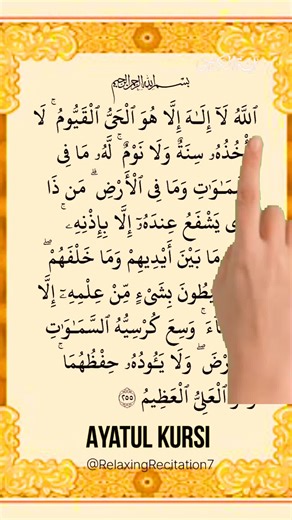 بسم الله الرحمن الرحيم
ٱللَّهُ لَآ إِلَـٰهَ إِلَّا هُوَ ٱلْحَىُّ ٱلْقَيُّومُ ۚ لَا
سِنَةٌ وَلَا نَوْمٌ ۚ لَّهُۥ مَا فِى
وَمَا فِى ٱلْأَرْضِ ۗ مَن ذَا
يَشْفَعُ عِندَهُۥٓ إِلَّا بِإِذْنِهِۦ ۚ
مَا بَيْنَ أَيْدِيهِمْ وَمَا خَلْفَهُمْ ۖ
بِشَىْءٍ مِّنْ عِلْمِهِۦٓ إِلَّا
وَسِعَ كُرْسِيُّهُ ٱلسَّمَـٰوَٰتِ
وَلَا يَـُٔودُهُۥ حِفْظُهُمَا ۚ
ٱلْعَلِىُّ ٱلْعَظِيمُ ٢٥٥
AYATUL KURSI
@RelaxingRecitation7